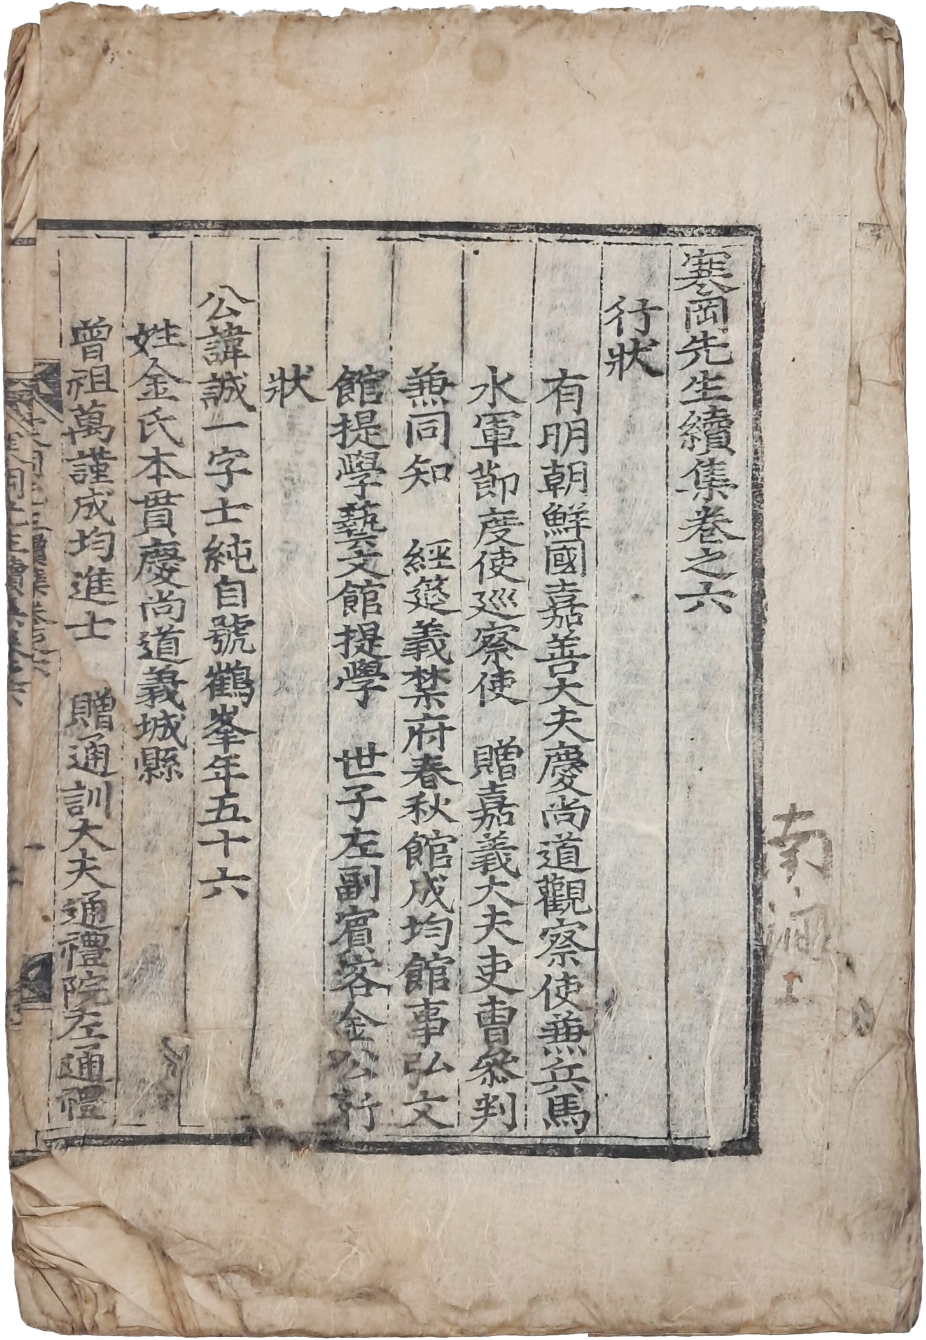 寒岡先生續集卷之六
行狀
有明朝鮮國嘉善大夫慶尚道觀察使兼兵馬
水軍節度使巡察使 贈嘉義大夫吏曹參判
兼同知 經筵義禁府春秋館成均館事弘文
館提學藝文館提學 世子左副賓客金公行
狀
公諱誠一字士純自號鶴峯年五十六
姓金氏本貫慶尚道義城縣
曾祖萬謹成均進士 贈通訓大夫通禮院左通禮
南